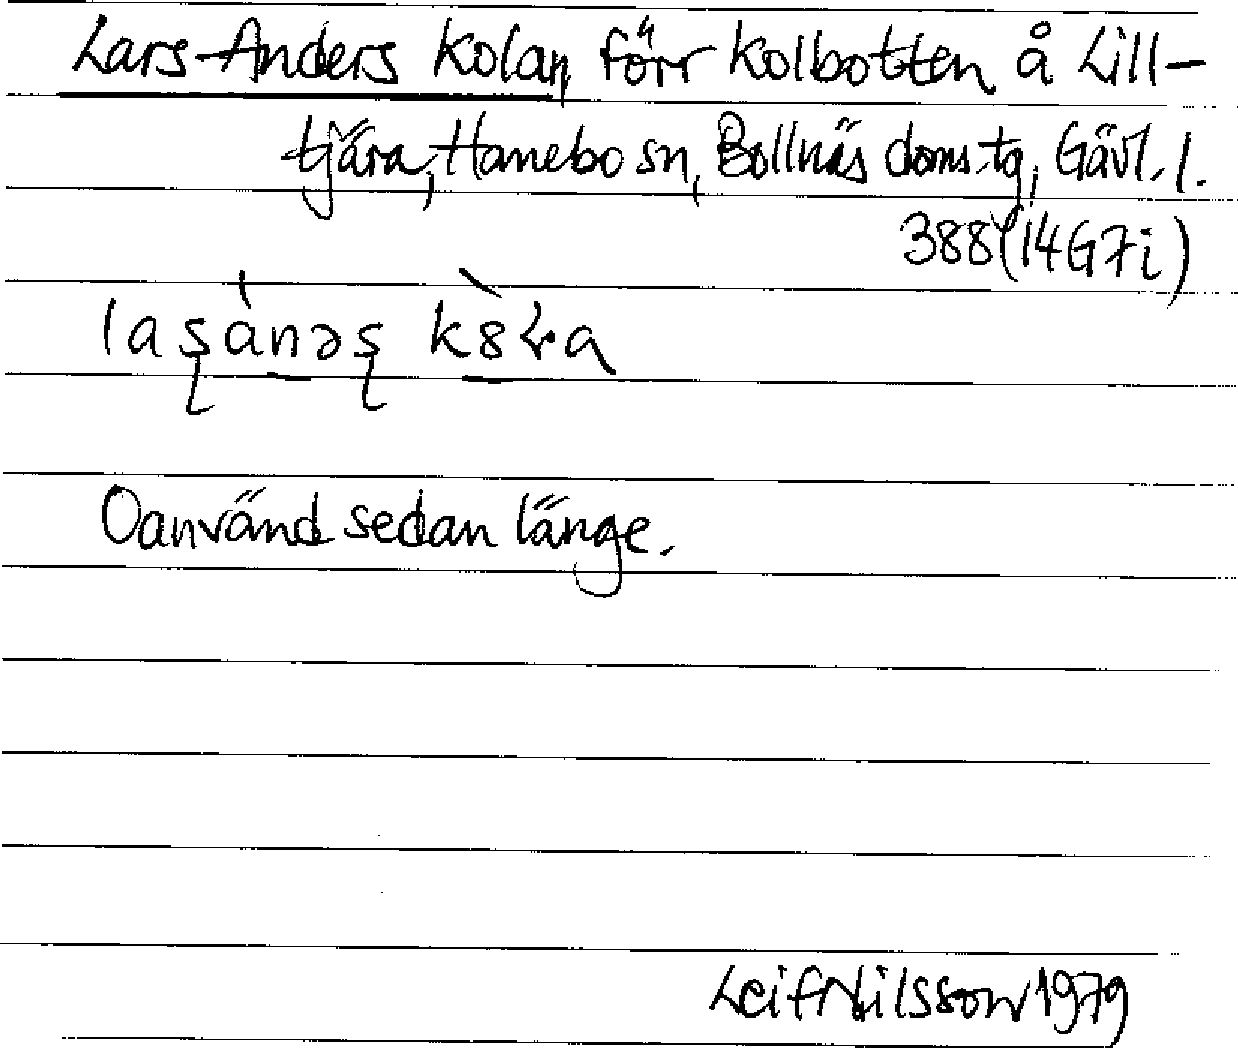 Lars-Anders Kolan, förr kolbotten å Lill-
tjära, Hanebo sn, Bollnäs doms.tg, Gävl. l.
388 (14G7i)
laşànəş kȣ̀ɽa
Oanvänd sedan länge.
Leif Nilsson 1979